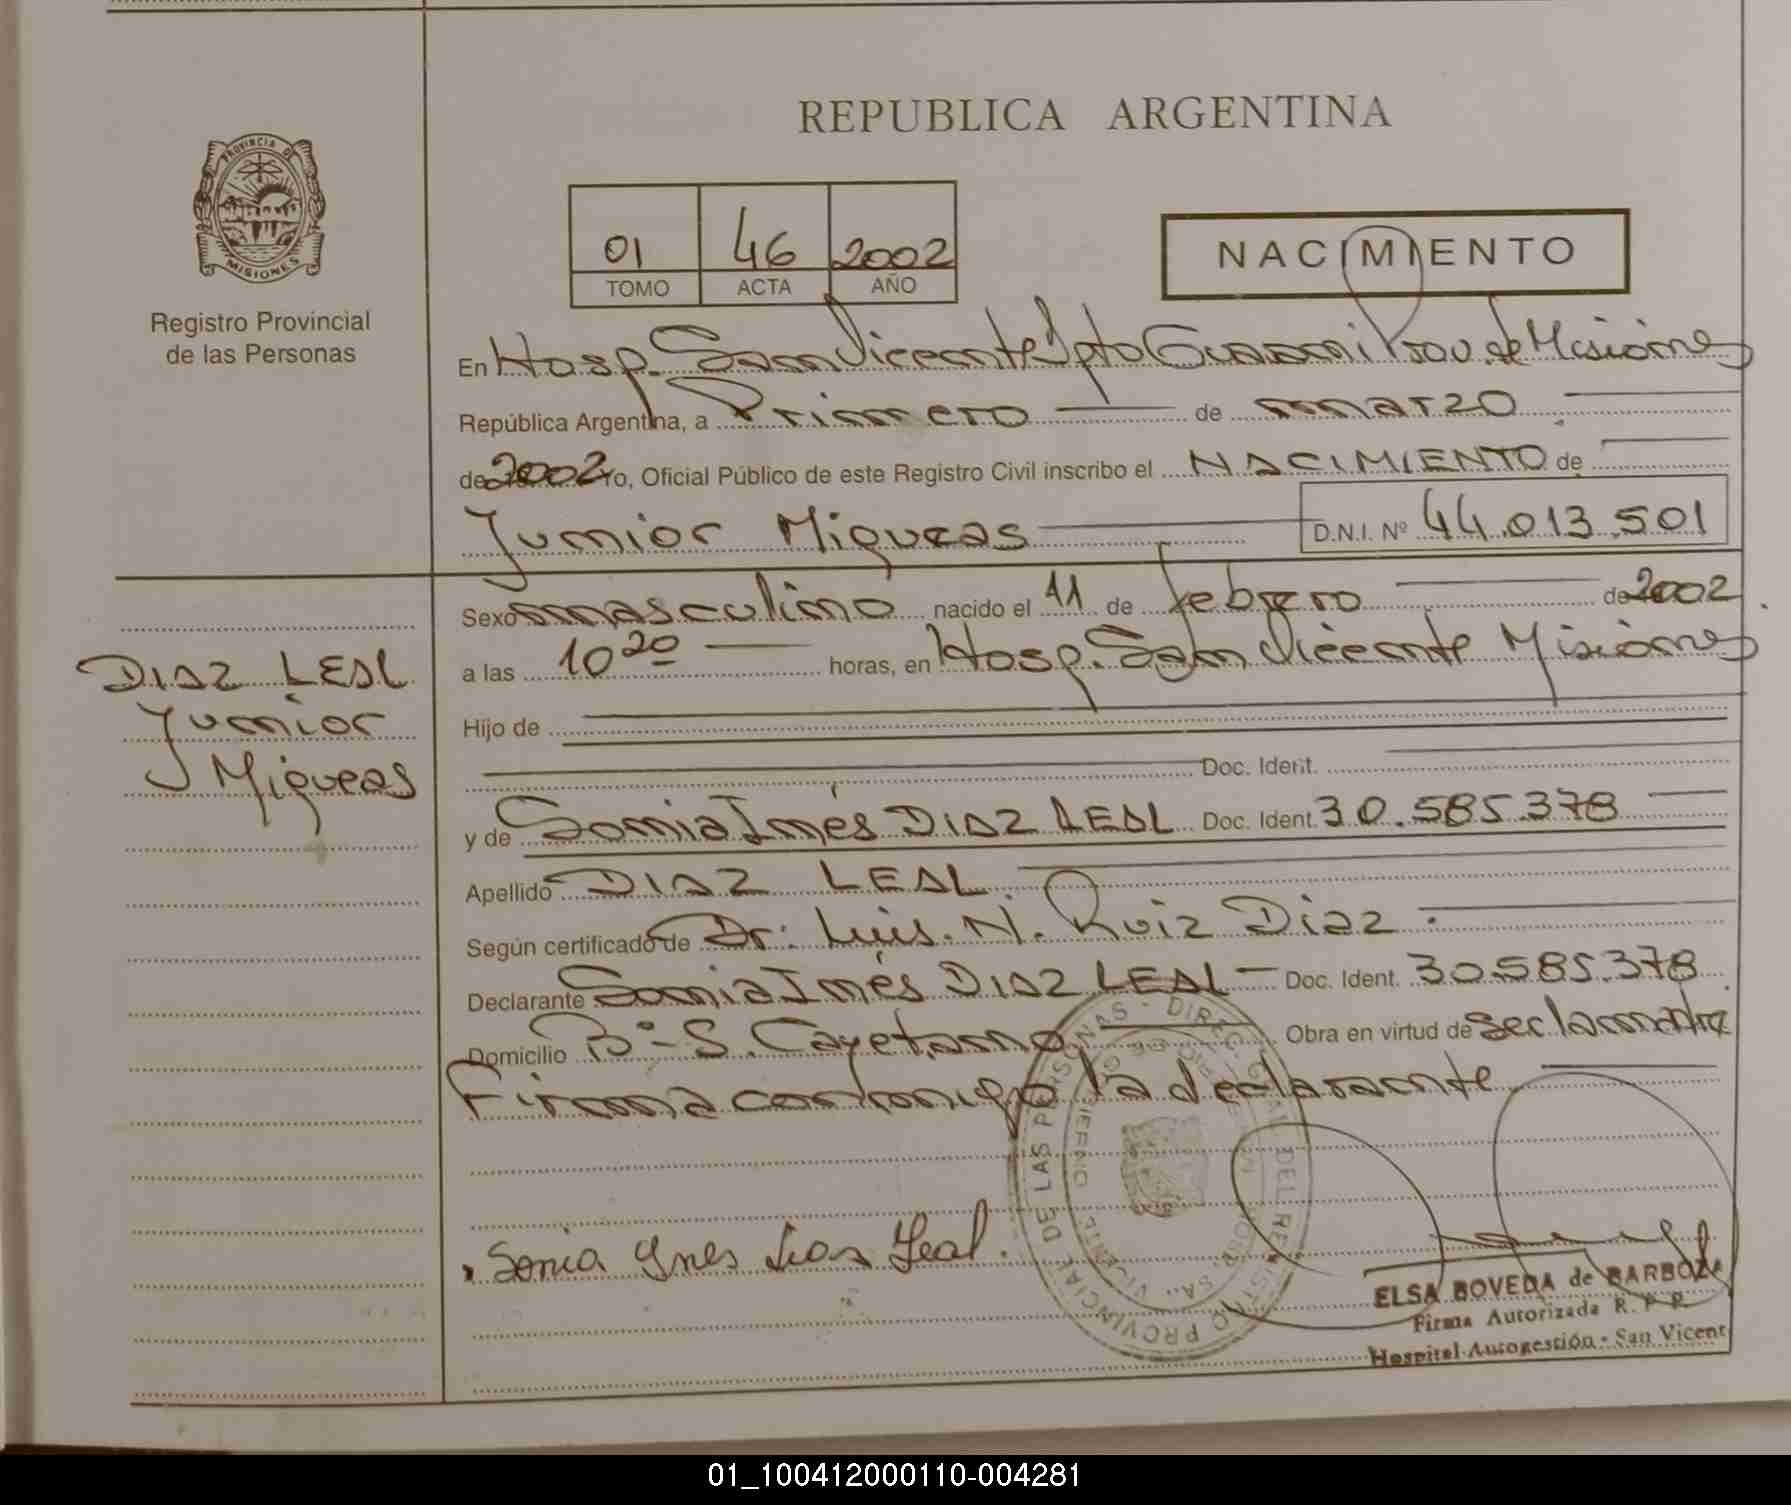 REPUBLICA ARGENTINA
PROVINCIA DE
MISIONES
Registro Provincial
de las Personas
01 46 2002
TOMO ACTA AÑO
NACIMIENTO
En Hosp. San Vicente Dpto Guarani Prov. de Misiones
República Argentina, a Primero de marzo
de 2002 Yo, Oficial Público de este Registro Civil inscribo el NACIMIENTO de
Junior Miqueas D.N.I. Nº 44.013.501
Sexo masculino nacido el 11 de febrero de 2002
a las 10 20 horas, en Hosp. San Vicente Misiones
Hijo de
Doc. Ident.
y de Sonia Inés DIAZ LEAL Doc. Ident. 30.585.378
Apellido DIAZ LEAL
Según certificado de Dr: Luis. N. Ruiz Diaz.
Declarante Sonia Inés DIAZ LEAL Doc. Ident. 30585.378
Domicilio Bº - S. Cayetano Obra en virtud de
Firma conmigo la declarante
DIAZ LEAL
Junior
Miqueas
Sonia Ynes Dias Leal.
ELSA BOVEDA de BARBOZA
Firma Autorizada R. P. P.
Hospital Autogestión - San Vicent
01_100412000110-004281